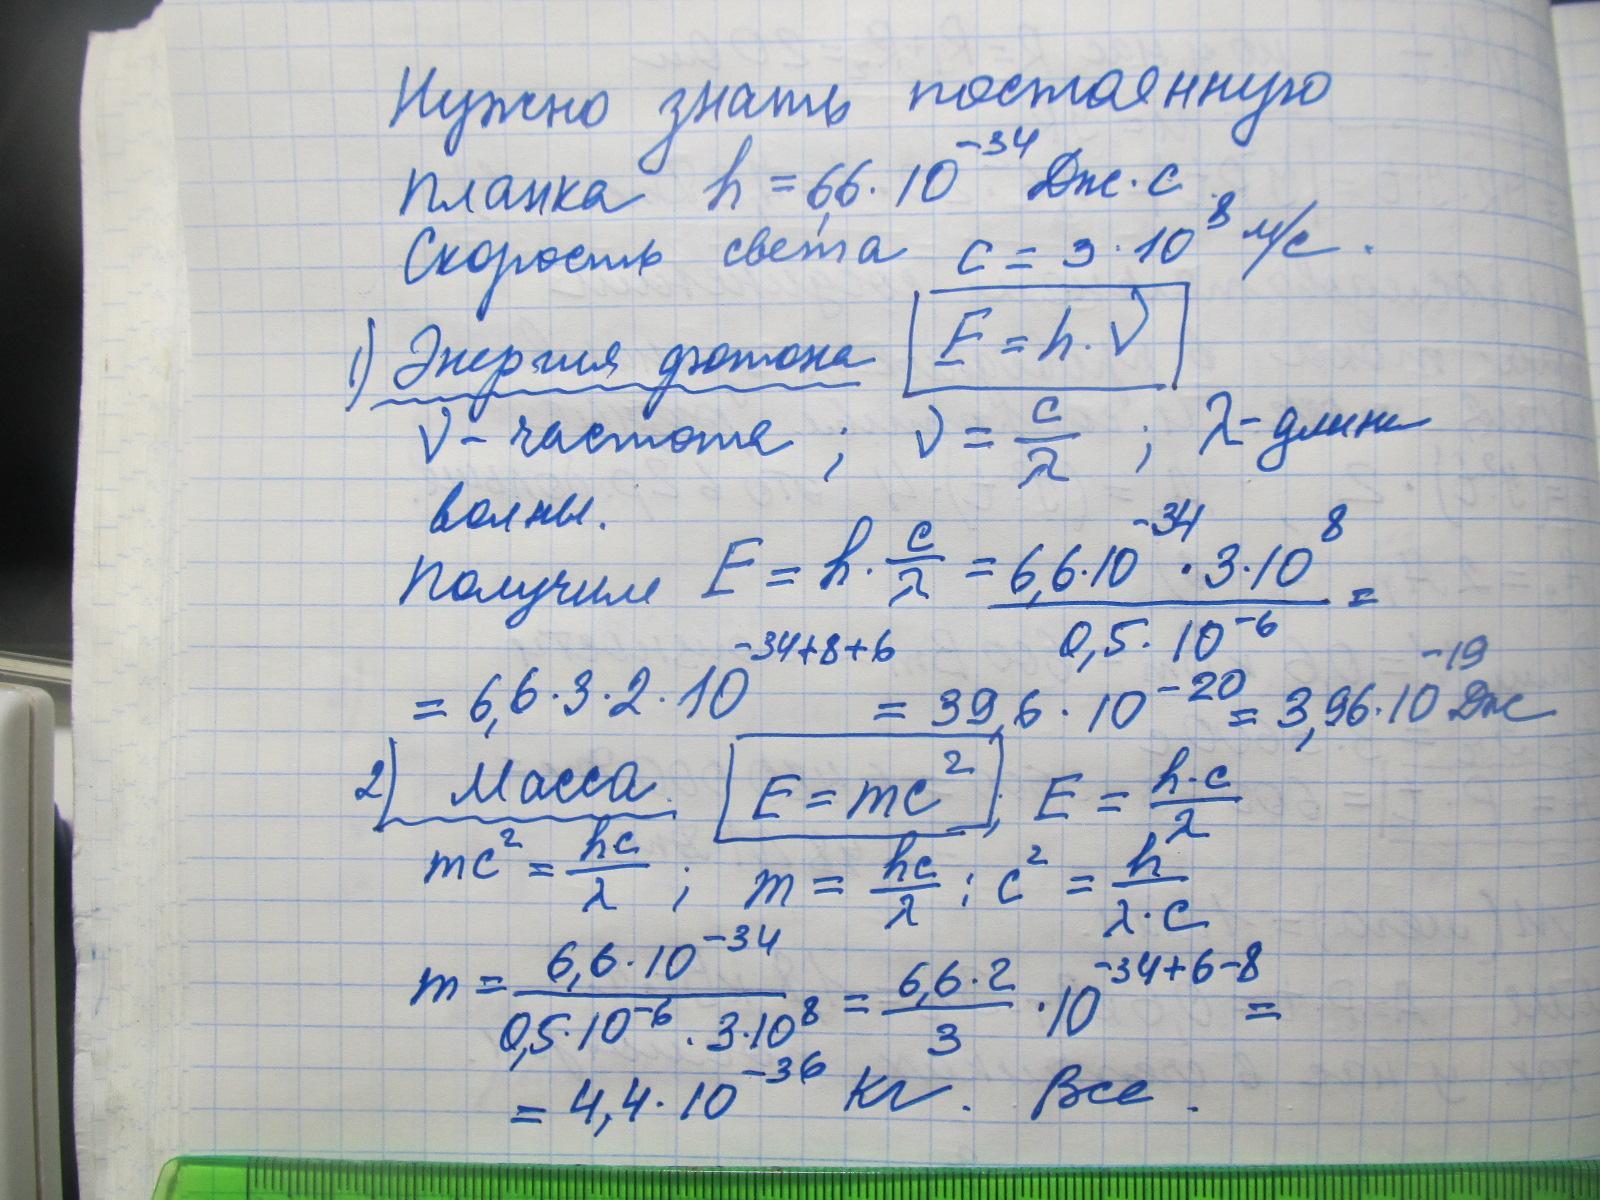 Нужно знать постоянную
планка h = 6,6·10⁻³⁴ Дж·с.
Скорость света c = 3·10⁸ м/с.
1) Энергия фотона E = h·ν
ν - частота ; ν = c/λ ; λ - длина
волны.
Получим E = h·c/λ = 6,6·10⁻³⁴·3·10⁸/0,5·10⁻⁶ =
= 6,6·3·2·10⁻³⁴⁺⁸⁺⁶ = 39,6·10⁻²⁰ = 3,96·10⁻¹⁹ Дж
2) Масса. E = mc² ; E = h·c/λ
mc² = hc/λ ; m = hc/λ : c² = h/λ·c
m = 6,6·10⁻³⁴/0,5·10⁻⁶·3·10⁸ = 6,6·2/3 ·10⁻³⁴⁺⁶⁻⁸ =
= 4,4·10⁻³⁶ кг. Все.